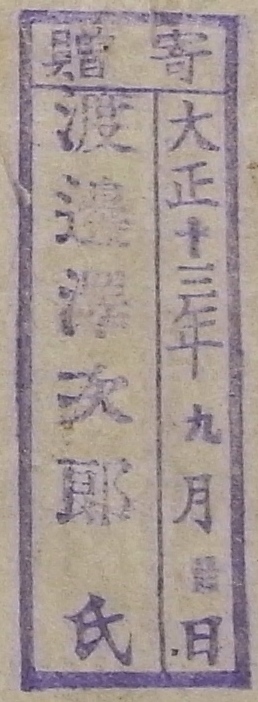 寄贈
大正十三年九月 日
渡邊 次郎氏